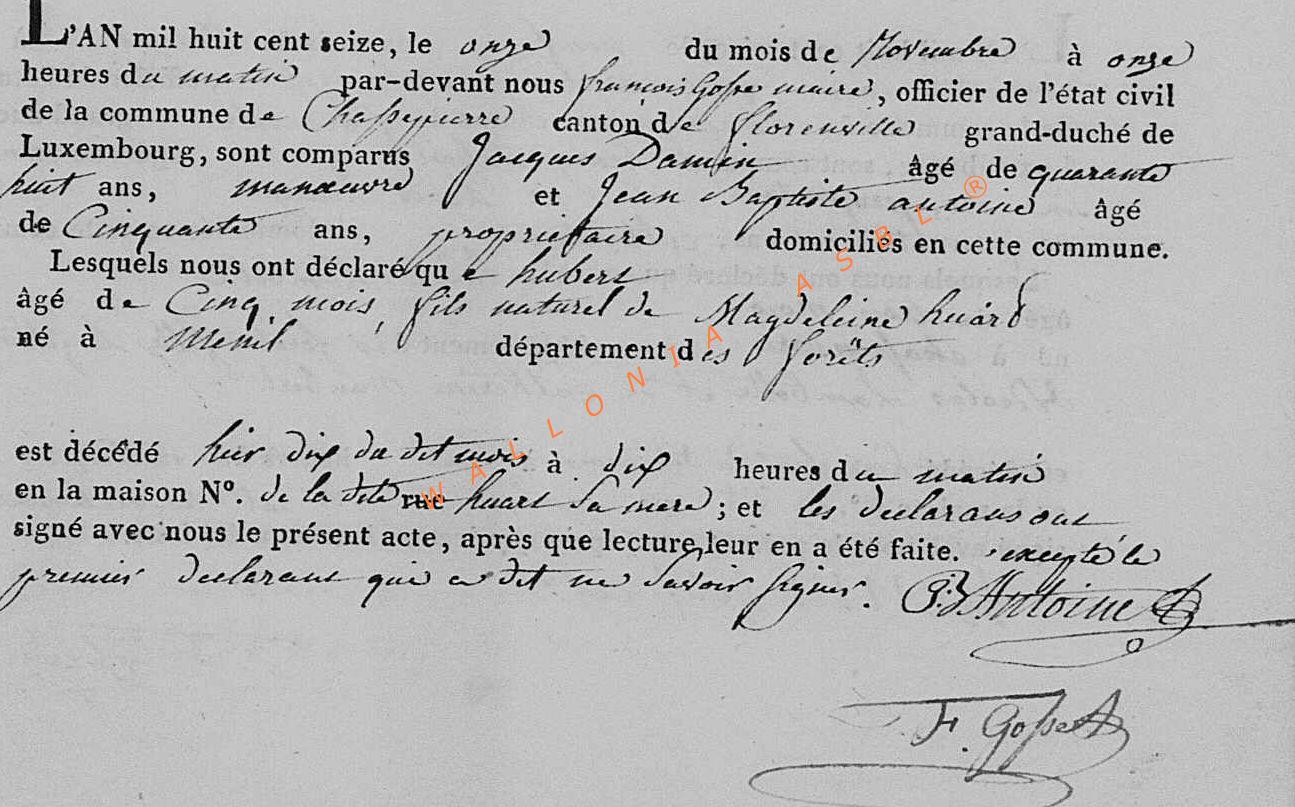 L'AN mil huit cent seize, le onze du mois de Novembre à onze
heures du matin par-devant nous françois Gosse maire, officier de l'état civil
de la commune de Chassepierre canton de florenville grand-duché de
Luxembourg, sont comparus Jacques Damin âgé de quarante
huit ans, manœuvre et Jean Baptiste antoine âgé
de Cinquante ans, propriétaire domiciliés en cette commune.
Lesquels nous ont déclaré que hubert
âgé de Cinq mois, fils naturel de Magdeleine huard
né à Menil département des forêts
est décédé hier dix du dit mois à dix heures du matin
en la maison N°. de la dite rue huart sa mere ; et les declarans ont
signé avec nous le présent acte, après que lecture leur en a été faite. excepté le
premier declarant qui a dit ne savoir signer. J B Antoine
F. Gosse
WALLONIA ASBL ®